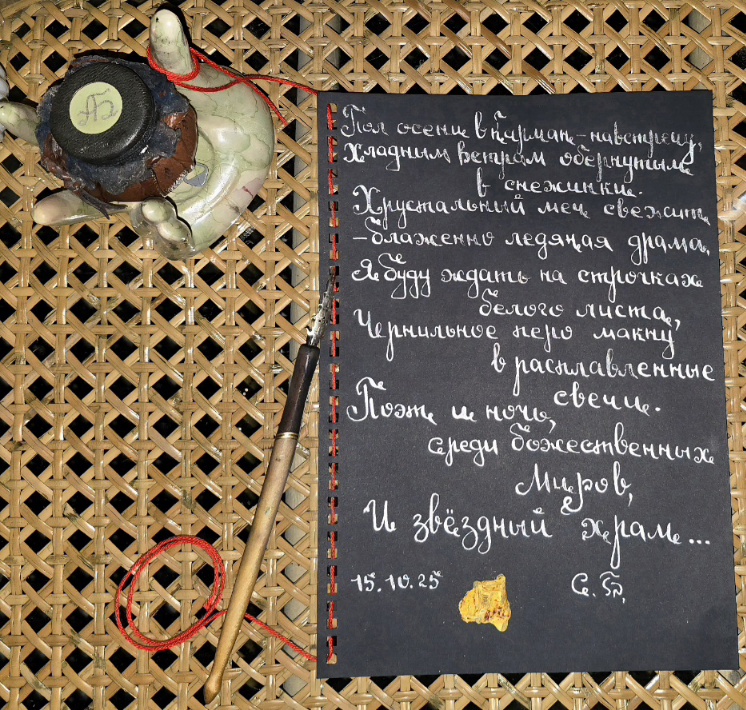 АБ
Пол осени в карман – навстречу,
хладным ветрам обернутым
в снежинки.
Хрустальный меч свежит,
– блаженно ледяная драма,
Я буду ждать на строчках
белого листа,
Чернильное перо макну
в расплавленные
свечи.
Поэж и ночь,
среди божественных
Миров,
И звёздный храм...
15.10.25 С.Б.